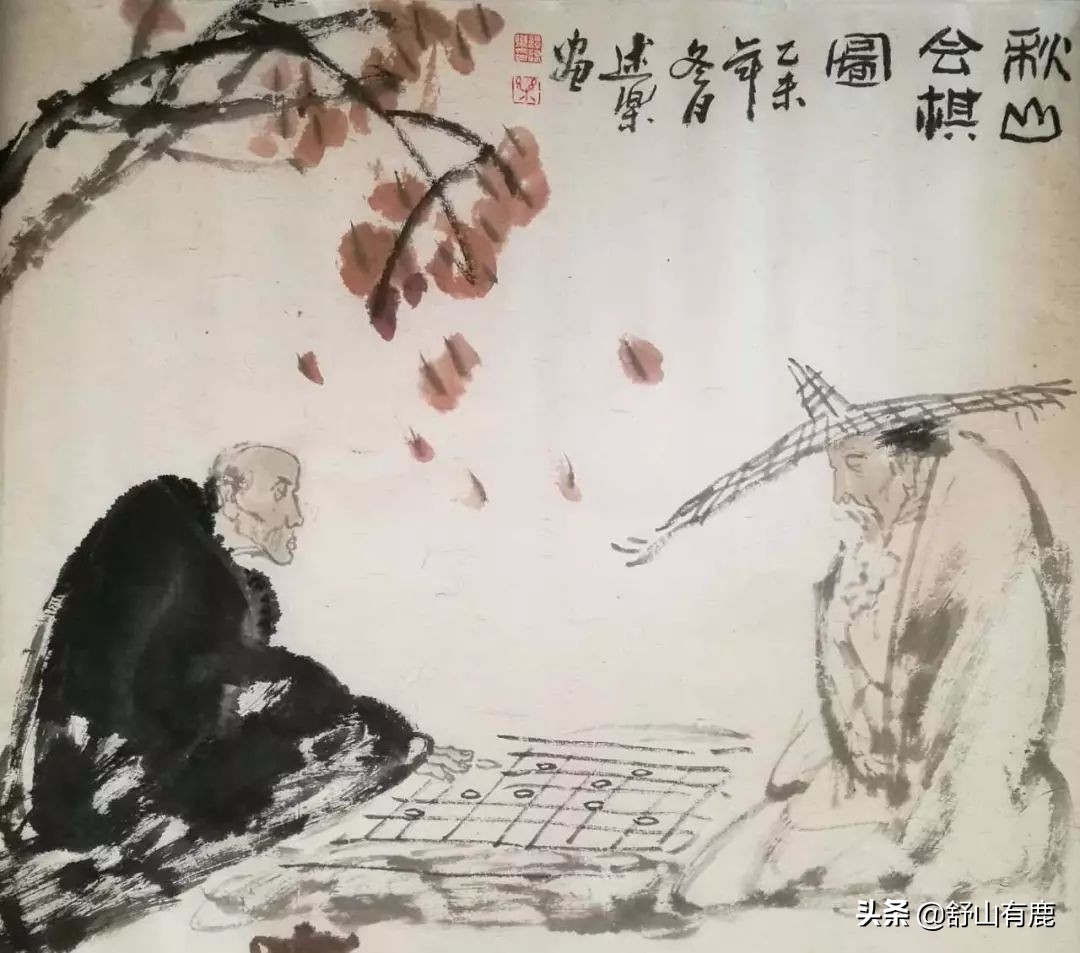 秋山
会棋
圖
乙未
年
冬月
述樂
画
头条 @舒山有鹿